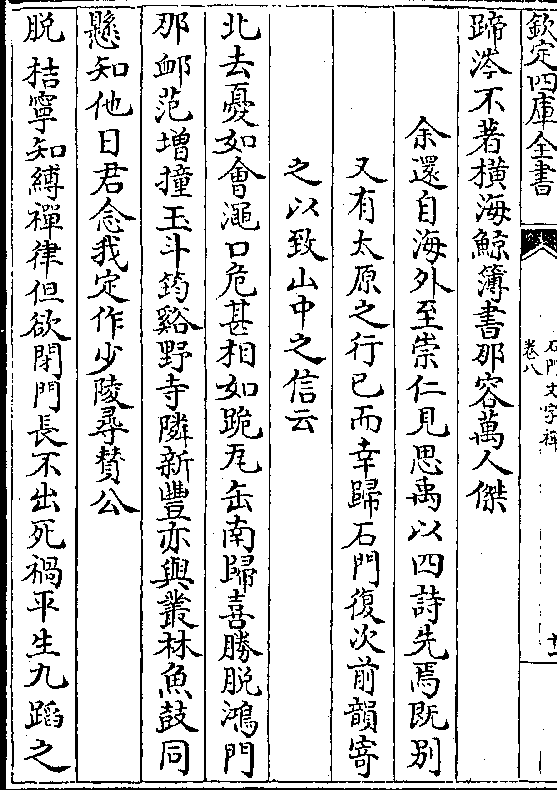 欽定四庫全書
石門文字禪
卷八
蹄涔不著橫海鯨簿書那容萬人傑
余還自海外至崇仁見思禹以四詩先焉既别
又有太原之行已而幸歸石門復次前韻寄
之以致山中之信云
北去憂如會澠口危甚相如跪缶南歸喜勝脱鴻門
那䘏范增撞玉斗筠谿野寺隣新豐亦與叢林魚鼓同
懸知他日君念我定作少陵尋賛公
脱桔寧知縛禪律但欲閉門長不出死禍平生九蹈之